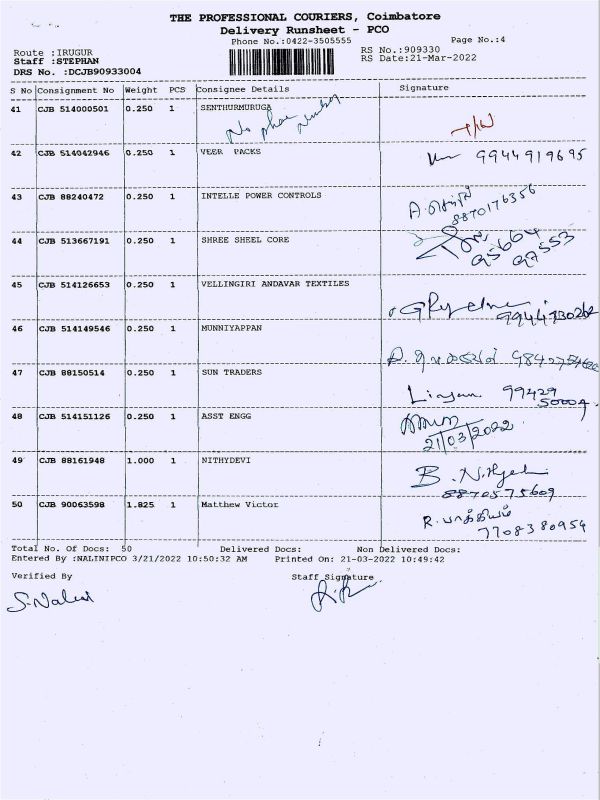 THE PROFESSIONAL COURIERS, Coimbatore
Delivery Runsheet - PCO
Phone No.:0422-3505555 Page No.:4
Route :IRUGUR RS No.:909330
Staff :STEPHAN RS Date:21-Mar-2022
DRS No. :DCJB90933004
S No Consignment No Weight PCS Consignee Details Signature
41 CJB 514000501 0.250 1 SENTHURMURUGA
No phone number
42 CJB 514042946 0.250 1 VEER PACKS
9944919695
43 CJB 88240472 0.250 1 INTELLE POWER CONTROLS
8870176356
44 CJB 513667191 0.250 1 SHREE SHEEL CORE
95664
97553
45 CJB 514126653 0.250 1 VELLINGIRI ANDAVAR TEXTILES
46 CJB 514149546 0.250 1 MUNNIYAPPAN
47 CJB 88150514 0.250 1 SUN TRADERS
99429
50009
48 CJB 514151126 0.250 1 ASST ENGG
21/03/2022
49 CJB 88161948 1.000 1 NITHYDEVI
8870575609
50 CJB 90063598 1.825 1 Matthew Victor
R. பாக்கியம்
7708380954
Total No. Of Docs: 50 Delivered Docs: Non Delivered Docs:
Entered By :NALINIPCO 3/21/2022 10:50:32 AM Printed On: 21-03-2022 10:49:42
Verified By Staff Signature
S.Nalini